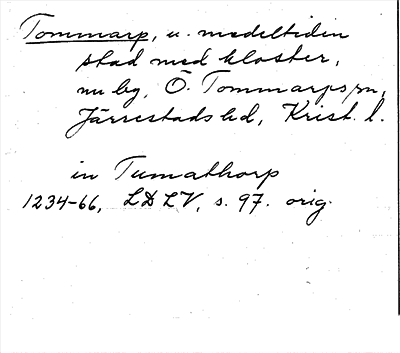 Tommarp, u. medeltiden
stad med kloster,
nu by, Ö. Tommarps sn,
Järrestads hd, Krist. l.
in Tumathorp
1234-66, LDLV, s. 97. orig.